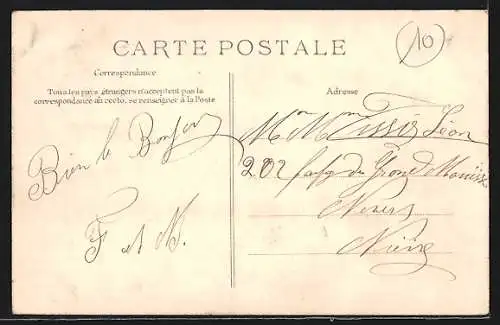 CARTE POSTALE
10
Correspondance
Tous les pays étrangers n'acceptent pas la
correspondance au recto, se renseigner à la Poste
Adresse
Bien le Bonjour
F et M.
Mr Mme Léon
202 fbg du Grand Mouësse
Nevers
Nièvre